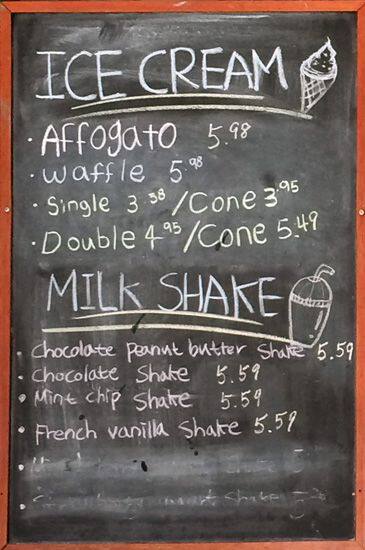 ICE CREAM
· Affogato 5.98
· Waffle 5.98
· Single 3.38 / Cone 3.95
· Double 4.95 / Cone 5.49
MILK SHAKE
· Chocolate peanut butter Shake 5.59
· Chocolate Shake 5.59
· Mint chip Shake 5.59
· French vanilla Shake 5.59